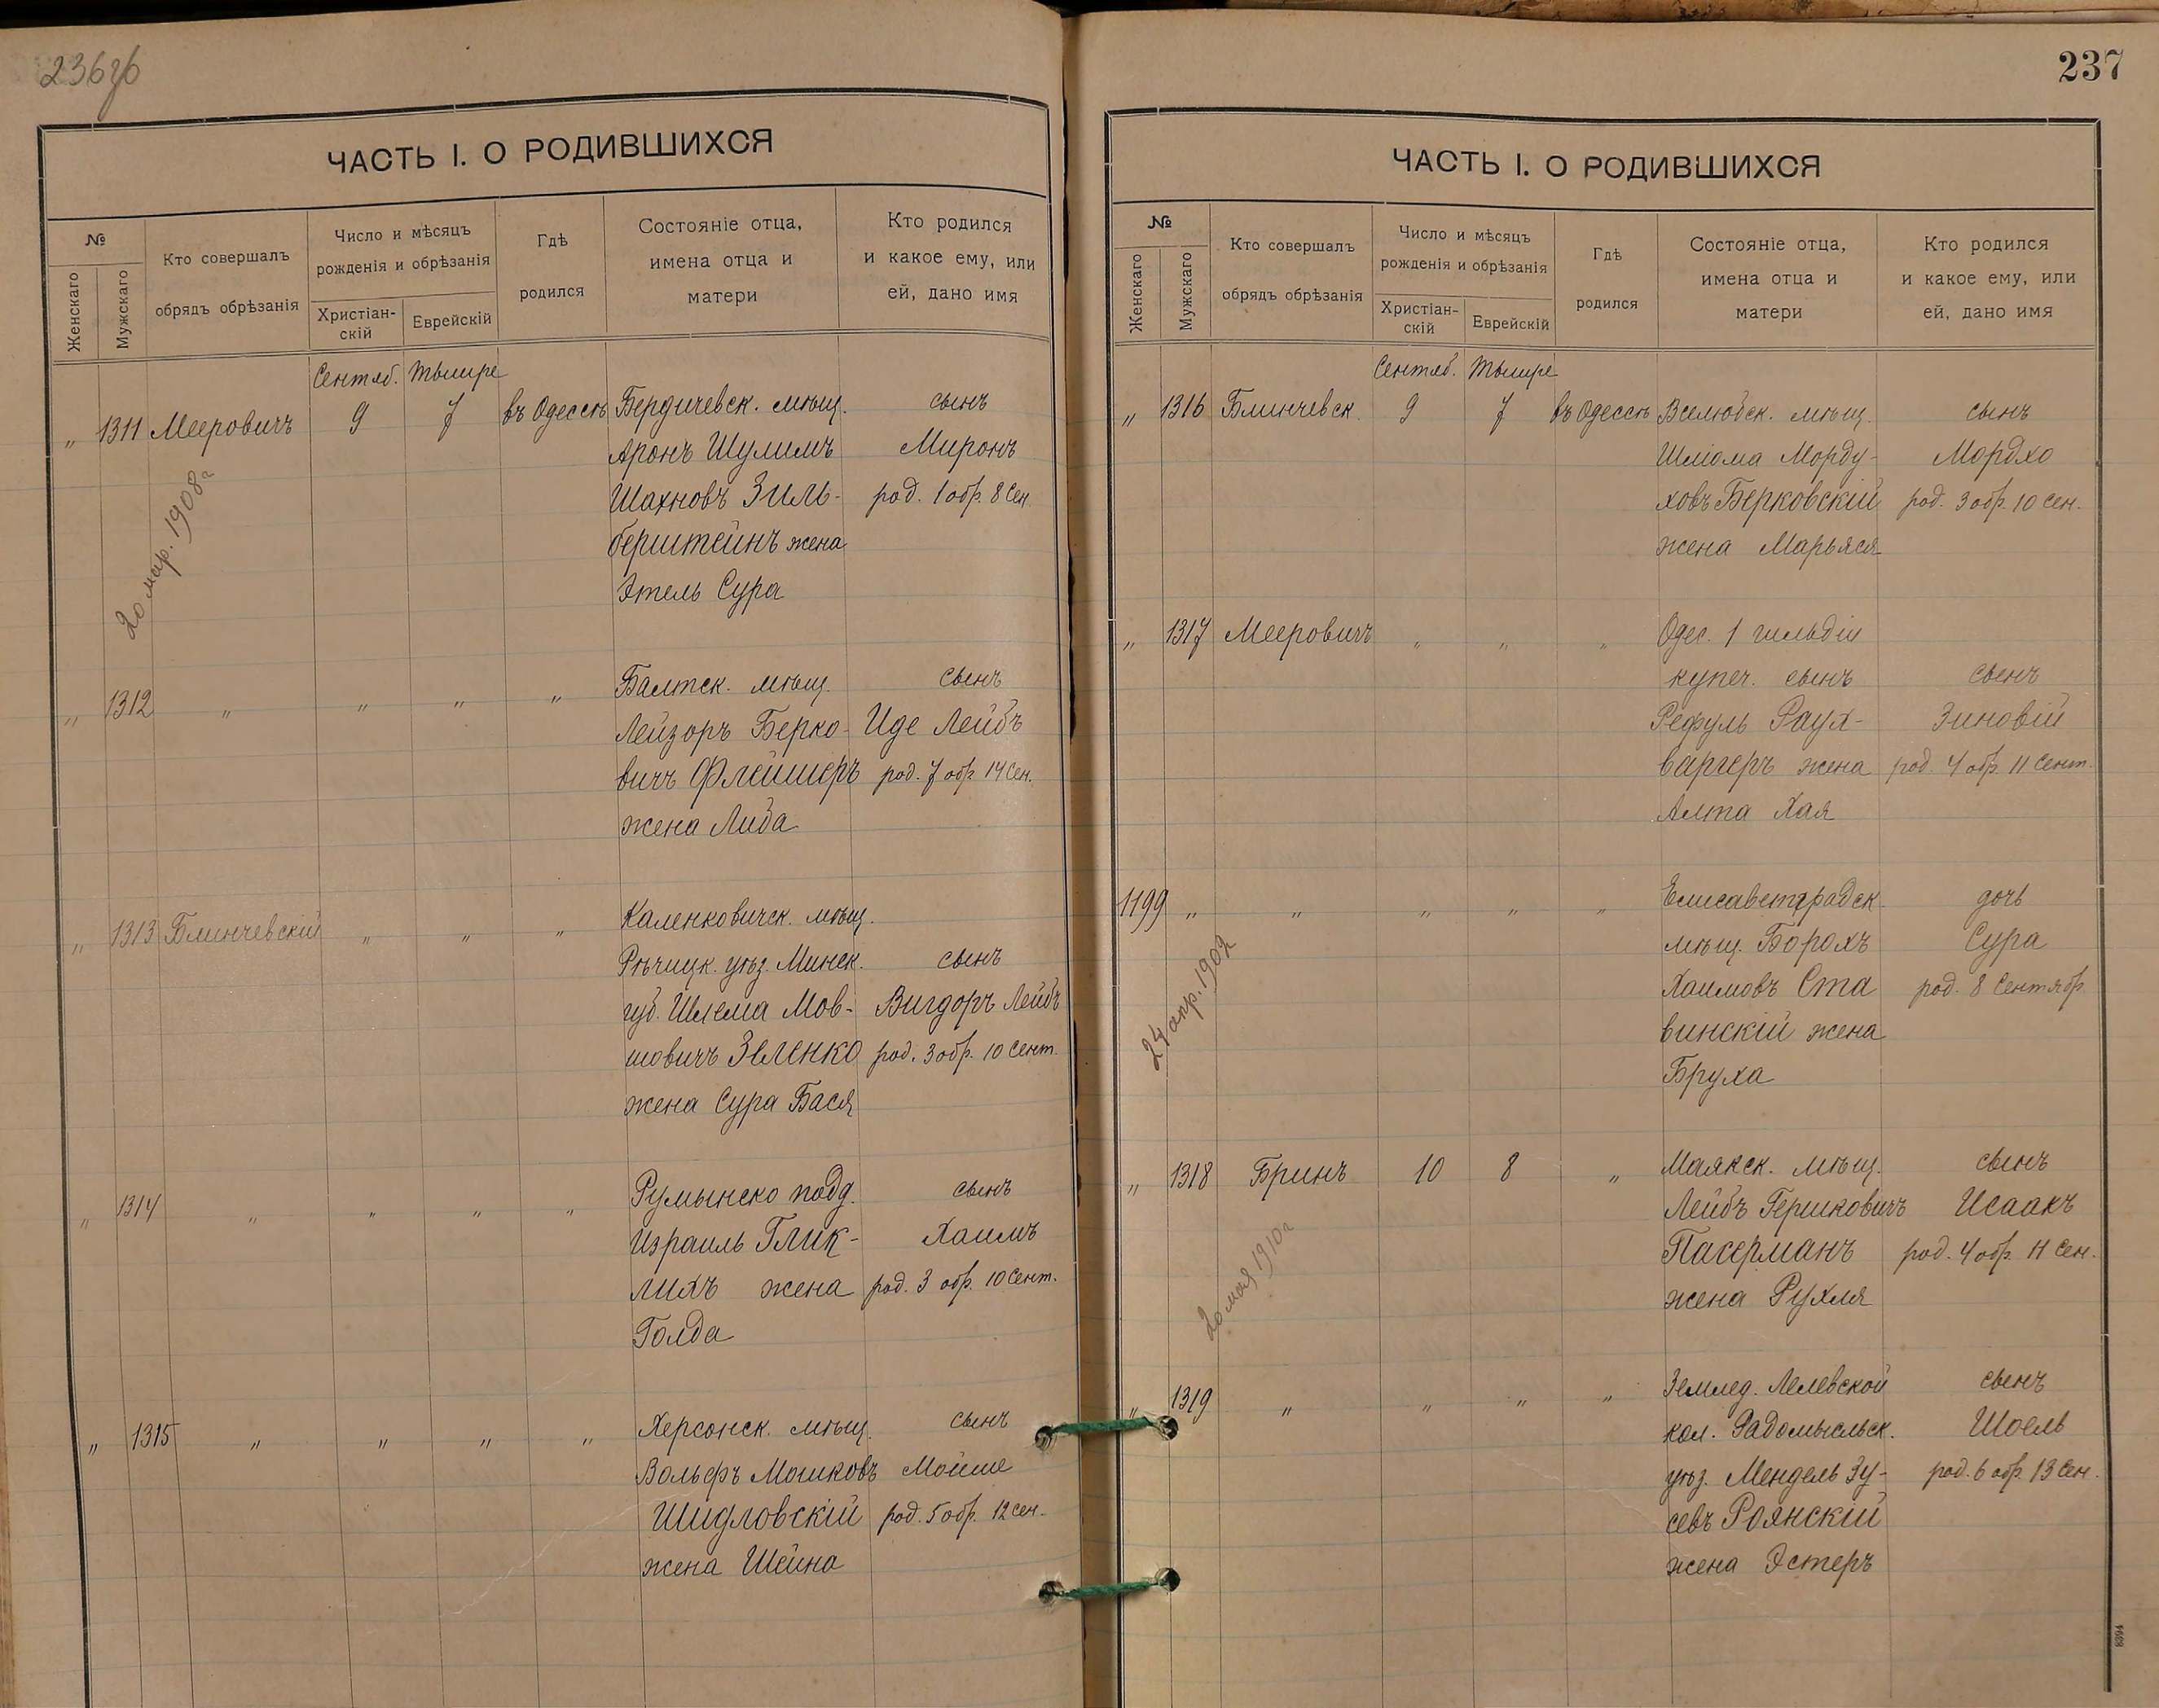 236об
ЧАСТЬ I. О РОДИВШИХСЯ
№
Женскаго
Мужскаго
Кто совершалъ
обрядъ обрѣзанія
Число и мѣсяцъ
рожденія и обрѣзанія
Христіан-
скій
Еврейскій
Гдѣ
родился
Состояніе отца,
имена отца и
матери
Кто родился
и какое ему, или
ей, дано имя
Сентяб. Тышре
„ 1311 Мееровичъ 9 7 въ Одессѣ Бердичевск. мѣщ. сынъ
Аронъ Шулимъ Миронъ
Шахновъ Зиль- род. 1 обр. 8 Сен.
берштейнъ жена
Этель Сура
20 мар. 1908 г
„ 1312 „ „ „ „ Балтск. мѣщ. сынъ
Лейзоръ Берко- Иде Лейбъ
вичъ Флейшеръ род. 7 обр. 14 Сен.
жена Либа
„ 1313 Блинчевскій „ „ „ Каленковичск. мѣщ.
Рѣчицк. уѣз. Минск. сынъ
губ. Шлема Мов- Вигдоръ Лейбъ
шовичъ Зеленко род. 3 обр. 10 Сент.
жена Сура Бася
„ 1314 „ „ „ „ Румынско подд. сынъ
Израиль Глик- Хаимъ
лихъ жена род. 3 обр. 10 Сент.
Голда
„ 1315 „ „ „ „ Херсонск. мѣщ. сынъ
Вольфъ Мошковъ Мойше
Шидловскій род. 5 обр. 12 сен.
жена Шейна
237
ЧАСТЬ I. О РОДИВШИХСЯ
№
Женскаго
Мужскаго
Кто совершалъ
обрядъ обрѣзанія
Число и мѣсяцъ
рожденія и обрѣзанія
Христіан-
скій
Еврейскій
Гдѣ
родился
Состояніе отца,
имена отца и
матери
Кто родился
и какое ему, или
ей, дано имя
Сентяб. Тышре
„ 1316 Блинчевск. 9 7 въ Одессѣ Вселюбск. мѣщ. сынъ
Шліома Морду- Мордхо
ховъ Берковскій род. 3 обр. 10 Сен.
жена Марьяся
„ 1317 Мееровичъ „ „ „ Одес. 1 гильдіи
купеч. сынъ сынъ
РефульРаух- Зиновій
варгеръ жена род. 4 обр. 11 Сент.
Алта Хая
1199 „ „ „ „ „ Елисаветградск. дочь
мѣщ. Борохъ Сура
Хаимовъ Ста род. 8 Сентябр.
винскій жена
Бруха
24 апр. 1902
„ 1318 Бринъ 10 8 „ Маякск. мѣщ. сынъ
Лейбъ Гершковичъ Исаакъ
Пасерманъ род. 4 обр. 11 Сен.
жена Рухля
20 мая 1910 г
„ 1319 „ „ „ „ Землед. Лелевской сынъ
кол. Радомысльск. Шоель
уѣз. Мендель Зу- род. 6 обр. 13 Сен.
севъ Роянскій
жена Эстеръ
8394